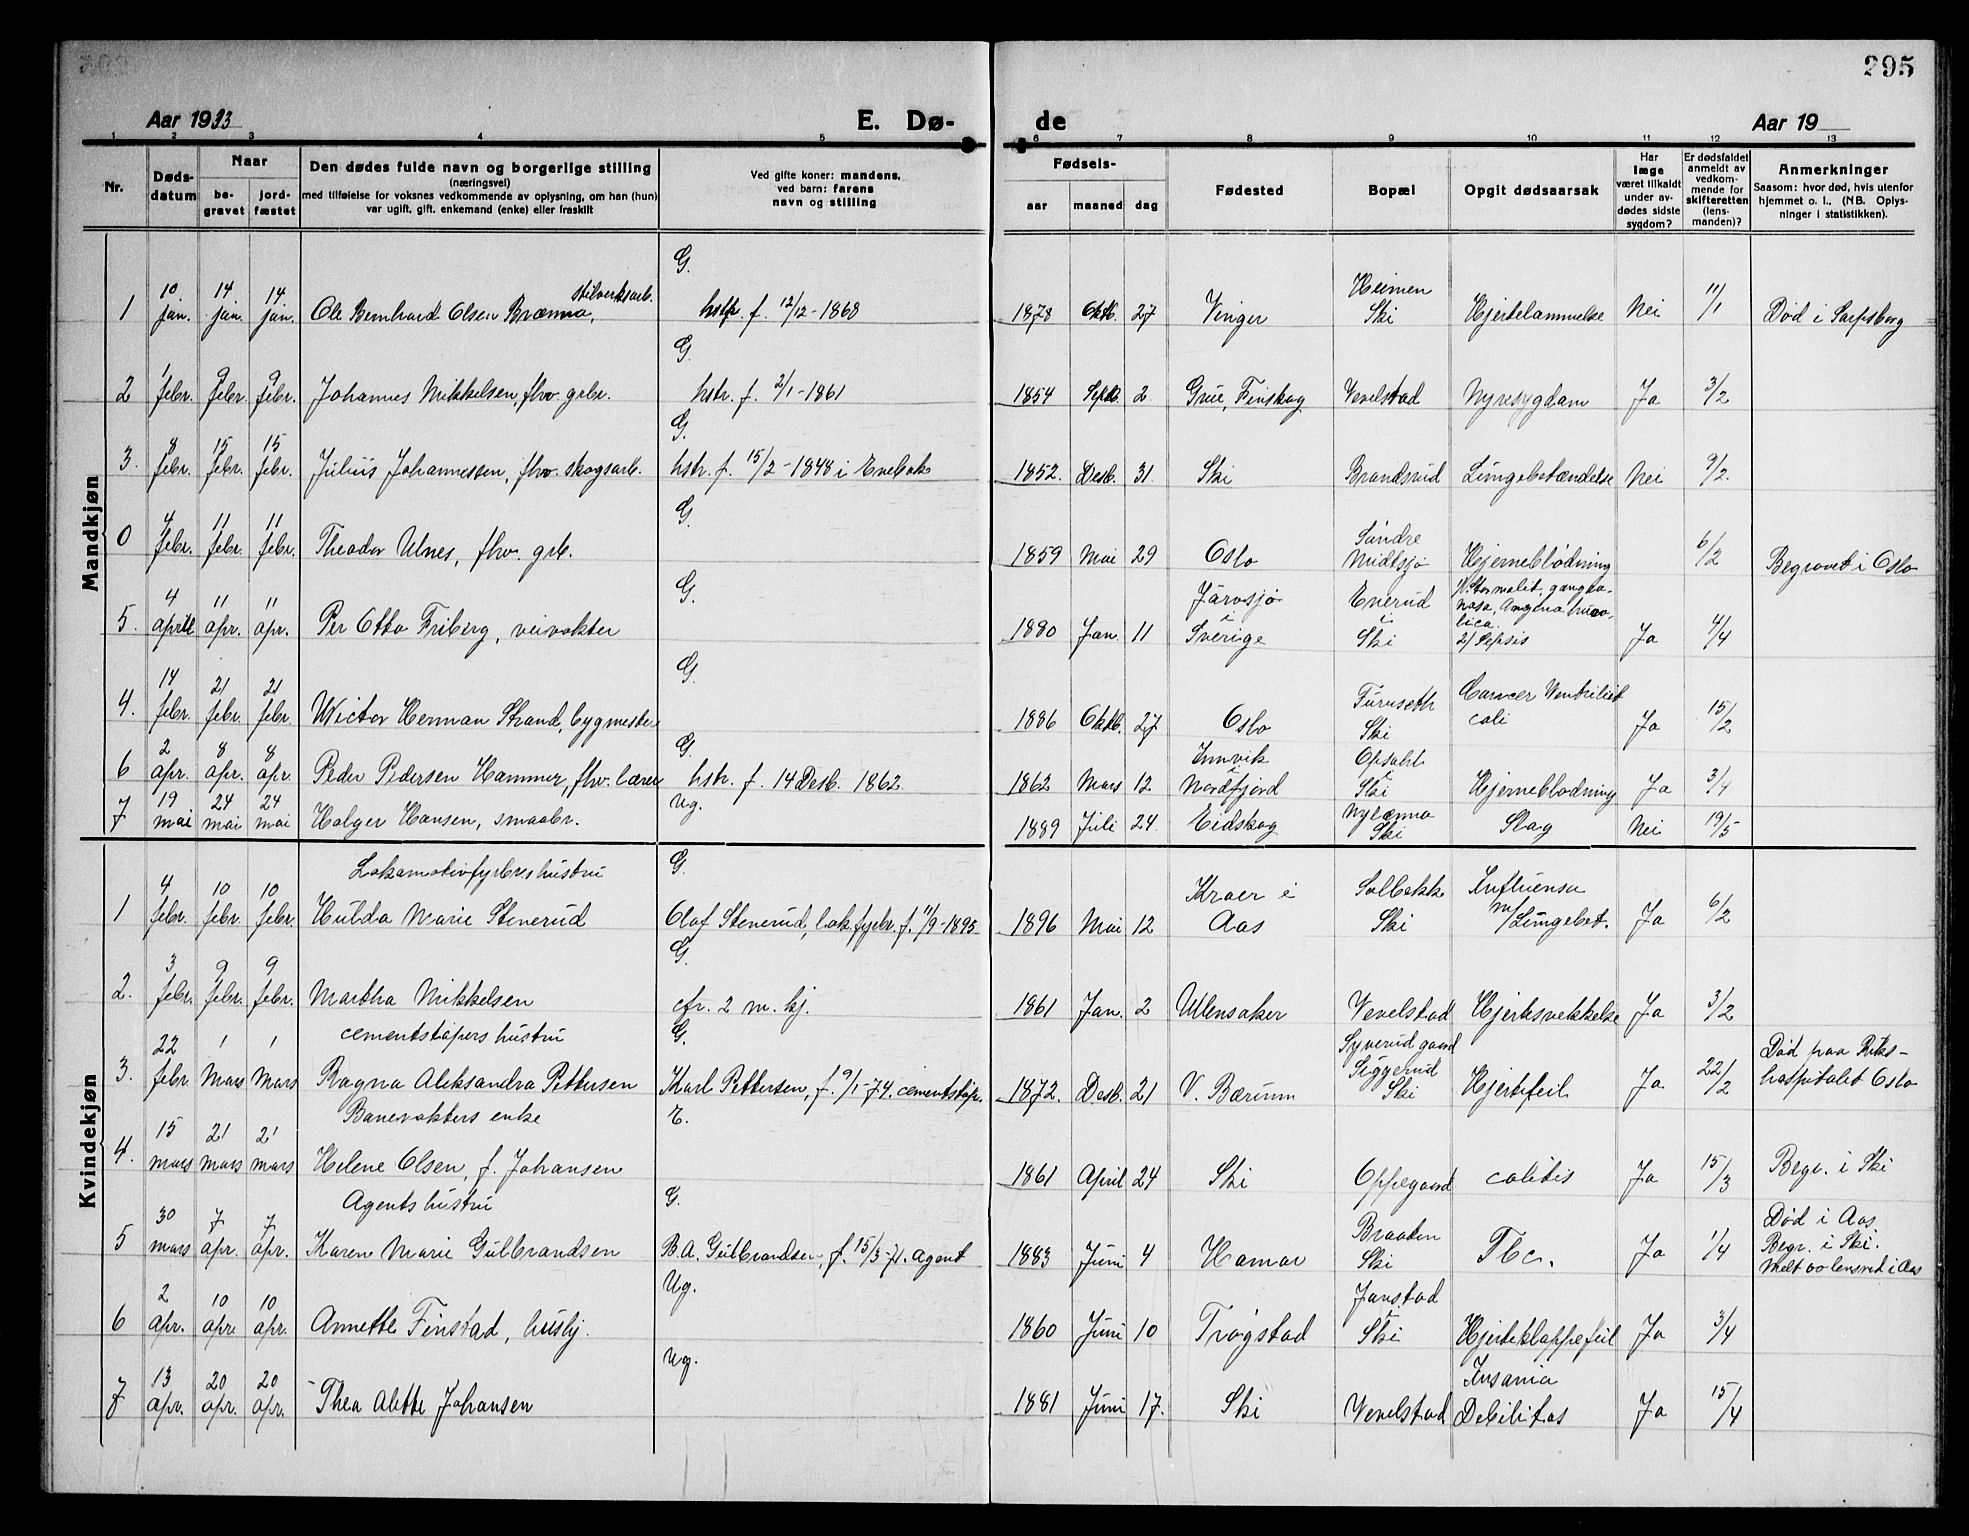 295
Aar 1933 E. Dø-
de Aar 19
1 2 3 4 5 6 7 8 9 10 11 12 13
Nr. Døds-datum Naar be-gravet jord-fæstet Den dødes fulde navn og borgerlige stilling (næringsvei) med tilføielse for voksnes vedkommende av oplysning, om han (hun) var ugift, gift, enkemand (enke) eller fraskilt Ved gifte koner: mandens, ved barn: farens navn og stilling Fødsels- aar maaned dag Fødested Bopæl Opgit dødsaarsak Har læge været tilkaldt under av-dødes sidste sygdom? Er dødsfaldet anmeldt av vedkom-mende for skifteretten (lens-manden)? Anmerkninger Saasom: hvor død, hvis utenfor hjemmet o. l., (NB. Oplys-ninger i statistikken).
Mandkjøn
1 10 jan. 14 jan. 14 jan. Ole Bernhard Olsen Brænna, G. hstr. f. 12/12-1868 1878 Oktb. 27 Vinger Heimen Ski Hjertelammelse Nei 11/1 Død i Sarpsborg
2 1 febr. 9 febr. 9 febr. Johannes Mikkelsen, fhv. grbr. G. hstr. f. 2/1-1861 1854 Septb. 2 Grue, Finskog Vevelstad Nyresygdom Ja 3/2
3. 8 febr. 15 febr. 15 febr. Julius Johannessen, fhv. skogsarb. G. hstr. f. 15/2-1848 i Enebak 1852. Desb. 31. Ski Brandsrud Lungebetændelse Nei 9/2.
0 4 febr. 11 febr. 11 febr. Theodor Ulnes, fhv. grb. G. 1859 Mai 29 Oslo Søndre Midtsjø Hjerneblødning 6/2 Begravet i Oslo
5. 4 april 11 apr. 11 apr. Per Otto Friberg, veivokter G. 1880 Jan. 11 Järvsjö i Sverige Enerud i Ski 2/ Sepsis Ja 4/4
4. 14 febr. 21 febr. 21 febr. Wictor Herman Strand, bygmester G. 1886 Oktb. 27 Oslo Furuseth Ski Cancer Ventriculi coli Ja 15/2
6 2 apr. 8 apr. 8 apr. Peder Pedersen Hammer, fhv. lærer G. hstr. f. 14 Desb. 1862 1862 Mars 12 Innvik i Nordfjord Opsahl i Ski Hjerneblødning Ja 3/4
7 19 mai 24 mai 24 mai Holger Hansen, smaabr. Ug. 1889 Juli 24. Eidskog Nyrænna Ski Slag Nei 19/5
Kvindekjøn
Lokomotivfyrbøters hustru
1 4 febr. 10 febr. 10 febr. Hulda Marie Stenerud G. Olaf Stenerud, lok.fyrbr. f. 11/9-1895 1896 Mai 12 Kroer i Aas Solbakk Ski Influensa m/ Lungebet. Ja 6/2
2. 3 febr. 9 febr. 9 febr. Martha Mikkelsen G. cfr. 2 m. kj. 1861 Jan. 2 Ullensaker Vevelstad Hjertesvekkelse Ja 3/2
cementstøpers hustru
3. 22 febr 1 Mars 1 Mars Ragna Aleksandra Pettersen G. Karl Pettersen, f. 9/1-74. cementstøp. 1872. Desb. 21 V. Bærum Syverud gaard Siggerud Ski Hjertefeil Ja 22/2 Død paa Riks-hospitalet Oslo
Banevokters enke
4. 15 mars 21 mars 21 mars Helene Olsen, f. Johansen E. 1861 April 24 Ski Oppegaard colitis Ja 15/3 Begr. i Ski
Agents hustru
5 30 mars 7 apr. 7 apr. Karen Marie Gulbrandsen G. B.A. Gulbrandsen, f. 15/3-71. Agent 1883 Juni 4 Hamar Braaten Ski Tbc. Ja 1/4 Død i Aas. Begr. i Ski.
6 2 apr. 10 apr. 10 apr. Annette Finstad, hushj. Ug. 1860 Juni 10 Trøgstad Finstad i Ski Hjerteklappefeil Ja 3/4
7 13 apr. 20 apr. 20 apr. Thea Alette Johansen Ug. 1881 Juni 17. Ski Vevelstad Insania Debilitas Ja 15/4